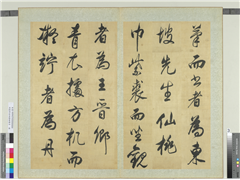 筆而書者為東
坡先生仙桃
巾紫裘而坐觀
者為王晉卿
青衣據方机而
凝竚者為丹